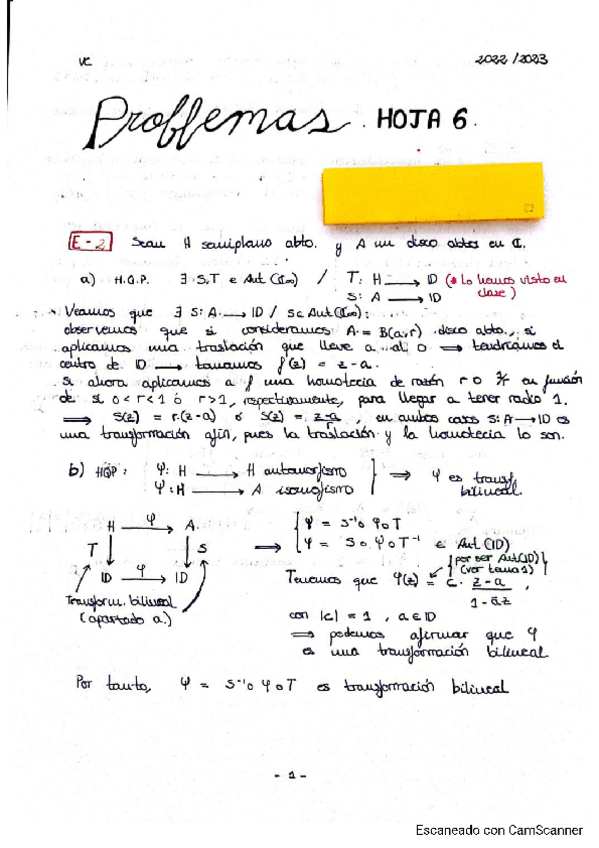 VC 2022/2023
Problemas. HOJA 6.
E-2 Sean H semiplano abto. y A un disco abtos en ℂ.
a) H.Q.P. ∃ S,T ∈ Aut (ℂ∞) / T: H → ID (* Lo hemos visto en clase)
S: A → ID
Veamos que ∃ S: A → ID / S ∈ Aut(ℂ∞):
observemos que si consideramos A = B(a,r) disco abto., si
aplicamos una traslación que lleve a al 0 ⟹ tendríamos el
centro de ID → tomamos f(z) = z-a.
Si ahora aplicamos a f una homotecia de razón r o 1/r en función
de si 0<r<1 ó r>1, respectivamente, para llegar a tener radio 1.
⟹ S(z) = r.(z-a) ó S(z) = (z-a)/r, en ambos casos S: A → ID es
una transformación afín, pues la traslación y la homotecia lo son.
b) HQP: Ψ: H → H automorfismo
Ψ: H → A isomorfismo
⟹ Ψ es transf. bilineal.
H Ψ→ A.
T S
ID φ→ ID
Transform. bilineal
(apartado a.)
⟹ { Ψ = S⁻¹ o φ o T
φ = S o Ψ o T⁻¹ ∈ Aut (ID)
{por ser Aut(ID)
(ver tema 1)}
Tenemos que φ(z) = c · (z-a)/(1-āz),
con |c| = 1, a ∈ ID
⟹ podemos afirmar que φ
es una transformación bilineal
Por tanto, Ψ = S⁻¹ o φ o T es transformación bilineal
- 1 -
Escaneado con CamScanner